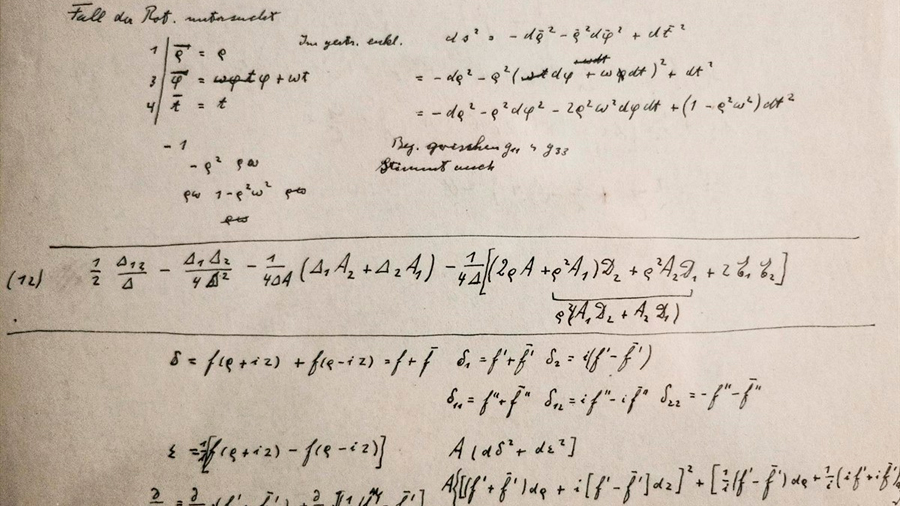 Fall der Rot. untersucht
1 | ϱ̄ = ϱ
3 | φ̄ = φ + ωt
4 | t̄ = t
ds² = − dϱ̄² − ϱ̄²dφ̄² + dt̄²
= − dϱ² − ϱ²(dφ + ωdt)² + dt²
= − dϱ² − ϱ²dφ² − 2ϱ²ω²dφdt + (1 − ϱ²ω²)dt²
−1
− ϱ² ϱω
ϱω 1−ϱ²ω²
Bez. zwischen g₁₁ u g₃₃
Stimmt auch
(12) 1/2 Δ₁₂/Δ − Δ₁Δ₂/4Δ² − 1/4ΔA (Δ₁A₂ + Δ₂A₁) − 1/4Δ[(2ϱA + ϱ²A₁)D₂ + ϱ²A₂D₁ + 2 ℭ₁ ℭ₂]
ϱ²(A₁D₂ + A₂D₁)
δ = f(ϱ+iz) + f(ϱ−iz) = f + f̄ δ₁ = f′+f̄′ δ₂ = i(f′−f̄′)
δ₁₁ = f″+f̄″ δ₁₂ = if″−if̄″ δ₂₂ = −f″−f̄″
ε = 1/i[f(ϱ+iz) − f(ϱ−iz)] A[dδ²+dε²]
A{[(f′+f̄′)dϱ + i[f′−f̄′]dz]² + [1/i(f′−f̄′)dϱ + 1/i(if′+if̄′)